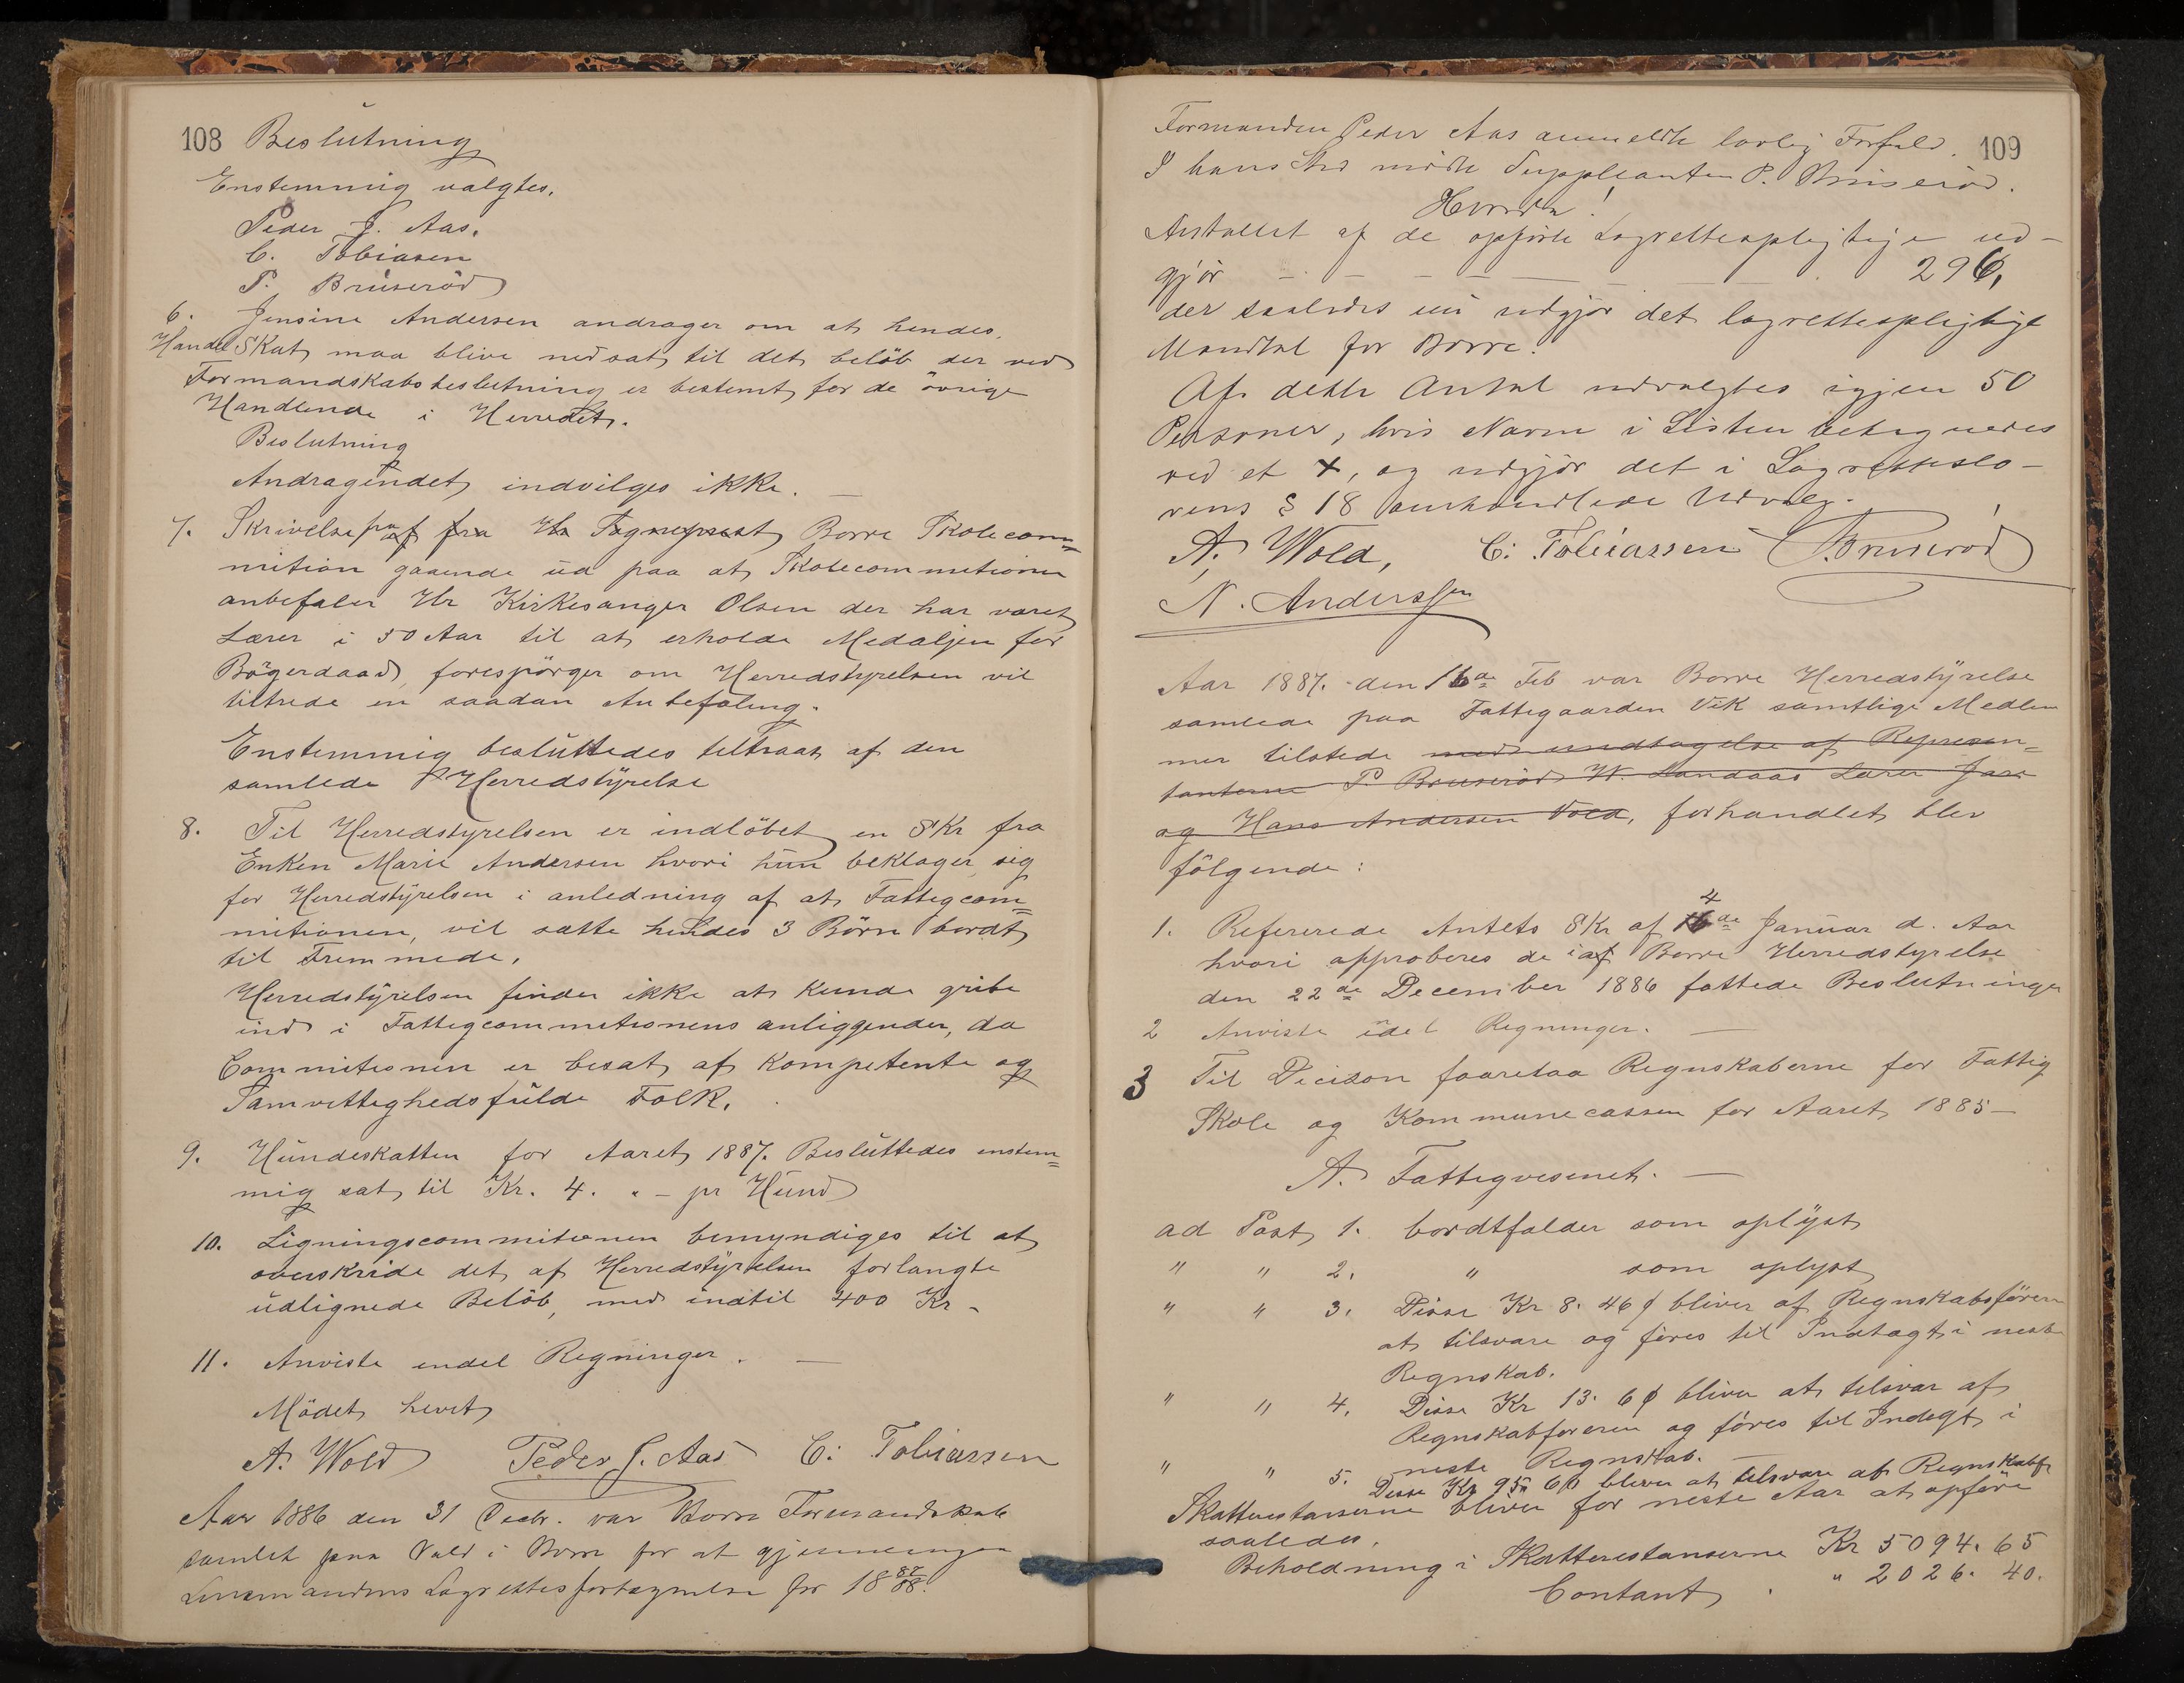 108 Beslutning
Enstemmig valgtes.
Peder J. Aas.
C. Tobiasen
P. Bruseröd
6. Jensine Andersen andrager om at hendes
Handel Skat maa blive nedsat til det belöb der ved
Formandskabsbeslutning er bestemt for de övrige
Handlende i Herredet.
Beslutning
Andragendet indvilges ikke. —
7. Skrivelse fra Borre Skolecom=
mition gaaende ud paa at Skolecommetionen
anbefaler Hr Kirkesanger Olsen der har været
Lærer i 50 Aar til at erholde Medaljen for
Börgerdaad, forespörger om Herredstyrelsen vil
tiltrede en saadan Anbefaling.
Enstemmig besluttedes tiltraat af den
samlede Herredstÿrelse
8. Til Herredstyrelsen er indlöbet en SKr fra
Enken Marie Andersen hvori hun beklager sig
for Herredstÿrelsen i anledning af at Fattigcom=
mitionen, vil sætte hendes 3 Börn bordt
til Fremmede.
Herredstÿrelsen finder ikke at kunde gribe
ind i Fattigcommetionens anliggender, da
Commitionen er besat af Kompetente og
Samvettighedsfulde Folk.
9. Hundeskatten for Aaret 1887. Besluttedes enstem=
mig sat til Kr. 4. " – pr Hund
10. Ligningscommitionen bemyndiges til at
overskride det af Herredstÿrelsen forlangte
udlignede Belöb, med indtil 400 Kr –
11. Anviste endel Regninger. —
Mödet hevet
A. Wold Peder J. Aas C: Tobiassen
Aar 1886 den 31 Decbr. var Borre Formandskab
samlet paa Vold i Borre for at gjennemgaa
Lensmandens Lagrettesfortegnelse for 18 87/88.
Formanden Peder Aas anmeldte lovlig Forfald. 109
I hans Sted mödte Suppleanten P. Bruseröd.
Hvorda!
Antallet af de opförte Lagrettespligtige ud-
gjör – – – – – – – 296,
der saaledes nu udgjör det lagrettespligtige
Mandtal for Borre.
Af dette Antal udvalgtes igjen 50
Personer, hvis Navne i Listen betegnedes
ved et X, og udgjör det i Lagretteslo-
vens § 18 omhandlede Udvalg.
A. Wold, C: Tobiassen P. Bruseröd
N. Anderssen
Aar 1887. den 16de Feb var Borre Herredstÿrelse
samlede paa Fattegaarden Vik samtlige Medlem
mer tilstede med undtagelse af Represen=
tanterne P. Bruseröd W. Landaas Lærer
og Hans Andersen Vold, forhandlet blev
fölgende:
1. Refererede Amtets SKr af 14de Januar d. Aar
hvori approberes de af Borre Herredstyrelse
den 22de December 1886 fattede Beslutninger
2 Anviste edel Regninger. —
3 Til Decision fooretaa Regnskaberne for Fattig
Skole og Kommunecassen for Aaret 1885 –
A. Fattigvesenet. —
ad Post 1. bordtfalder som oplÿst
" " 2. " som oplyst
" " 3. Disse Kr 8. 46 ø bliver af Regnskabsföreren
at tilsvare og föres til Indtægt i neste
Regnskab.
" " 4. Disse Kr 13. 6 ø bliver at tilsvar af
Regnskabföreren og föres til Indægt i
neste Regnskab. —
" " 5. Disse Kr 95 60 bliver at tilsvare af Regnskabf.
Skatterestanserne bliver for neste Aar at opföre
saaledes.
Beholdning i Skatterestanserne Kr 5094. 65
Contant " 2026. 40.